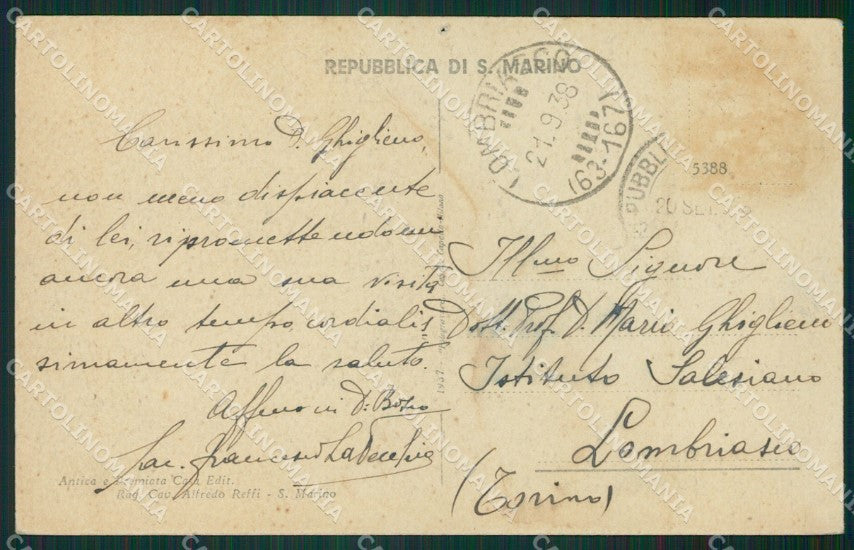 REPUBBLICA DI S. MARINO
Carissimo D. Ghiglieno,
non meno dispiacente
di lei, ripromettendomi
ancora una sua visita
in altro tempo, cordialis
simamente la saluto.
Aff.mo in D. Bosco
Sac. Francesco La
Antica e Premiata Casa Edit.
Rag. Cav. Alfredo Reffi - S. Marino
1937
LOMBRIASCO
21.9.38
(63-167)
PUBBLI
20 SET.
5388
Ill.mo Signore
Dott. Prof. D. Mario Ghiglieno
Istituto Salesiano
Lombriasco
(Torino)
CARTOLINOMANIA